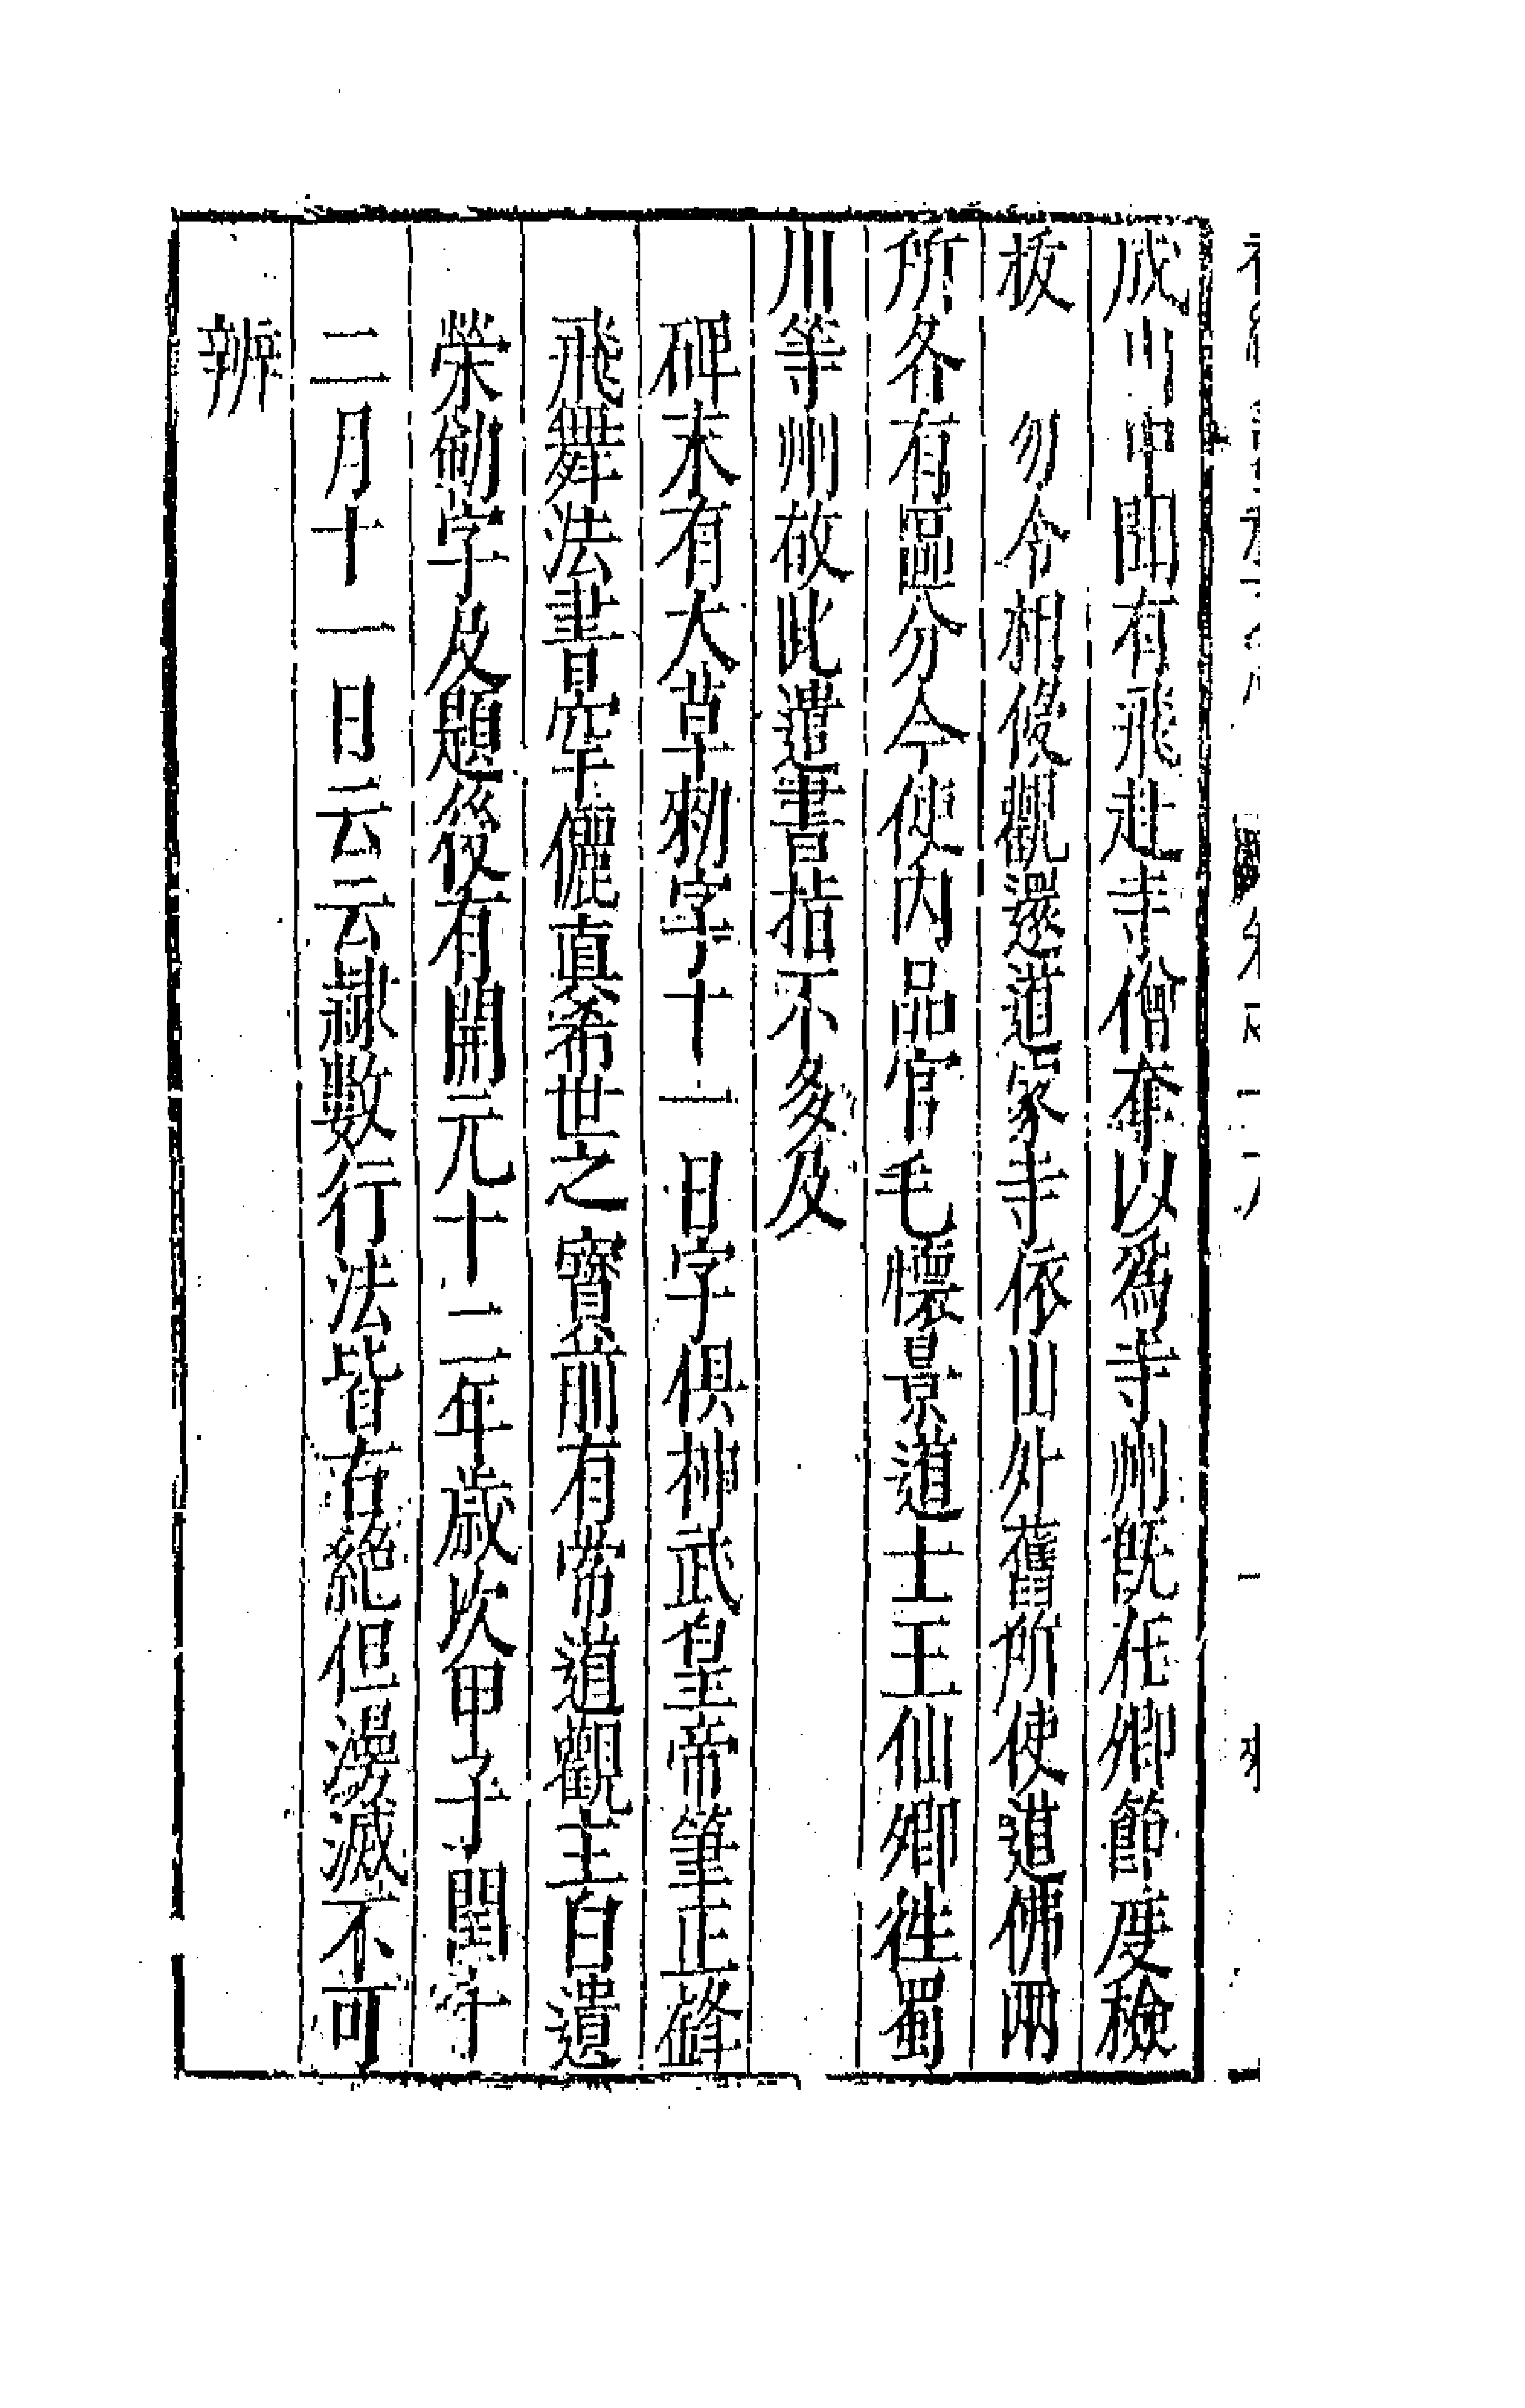 成山中聞有飛赴寺僧奪以爲寺州既在卿節度檢
校　勿令相侵觀還道家寺依山外舊所使道佛兩
所各有區分今使内品官毛懷景道士王仙卿往蜀
川等州故此遣書指不多及
碑末有大草勑字十一日字俱神武皇帝筆正鋒
飛舞法書空儷真希世之寶前有常道觀主白遺
榮勒字及題後有開元十二年歲次甲子閏字
二月十一日云云隷數行法皆右絕但漫滅不可
辨